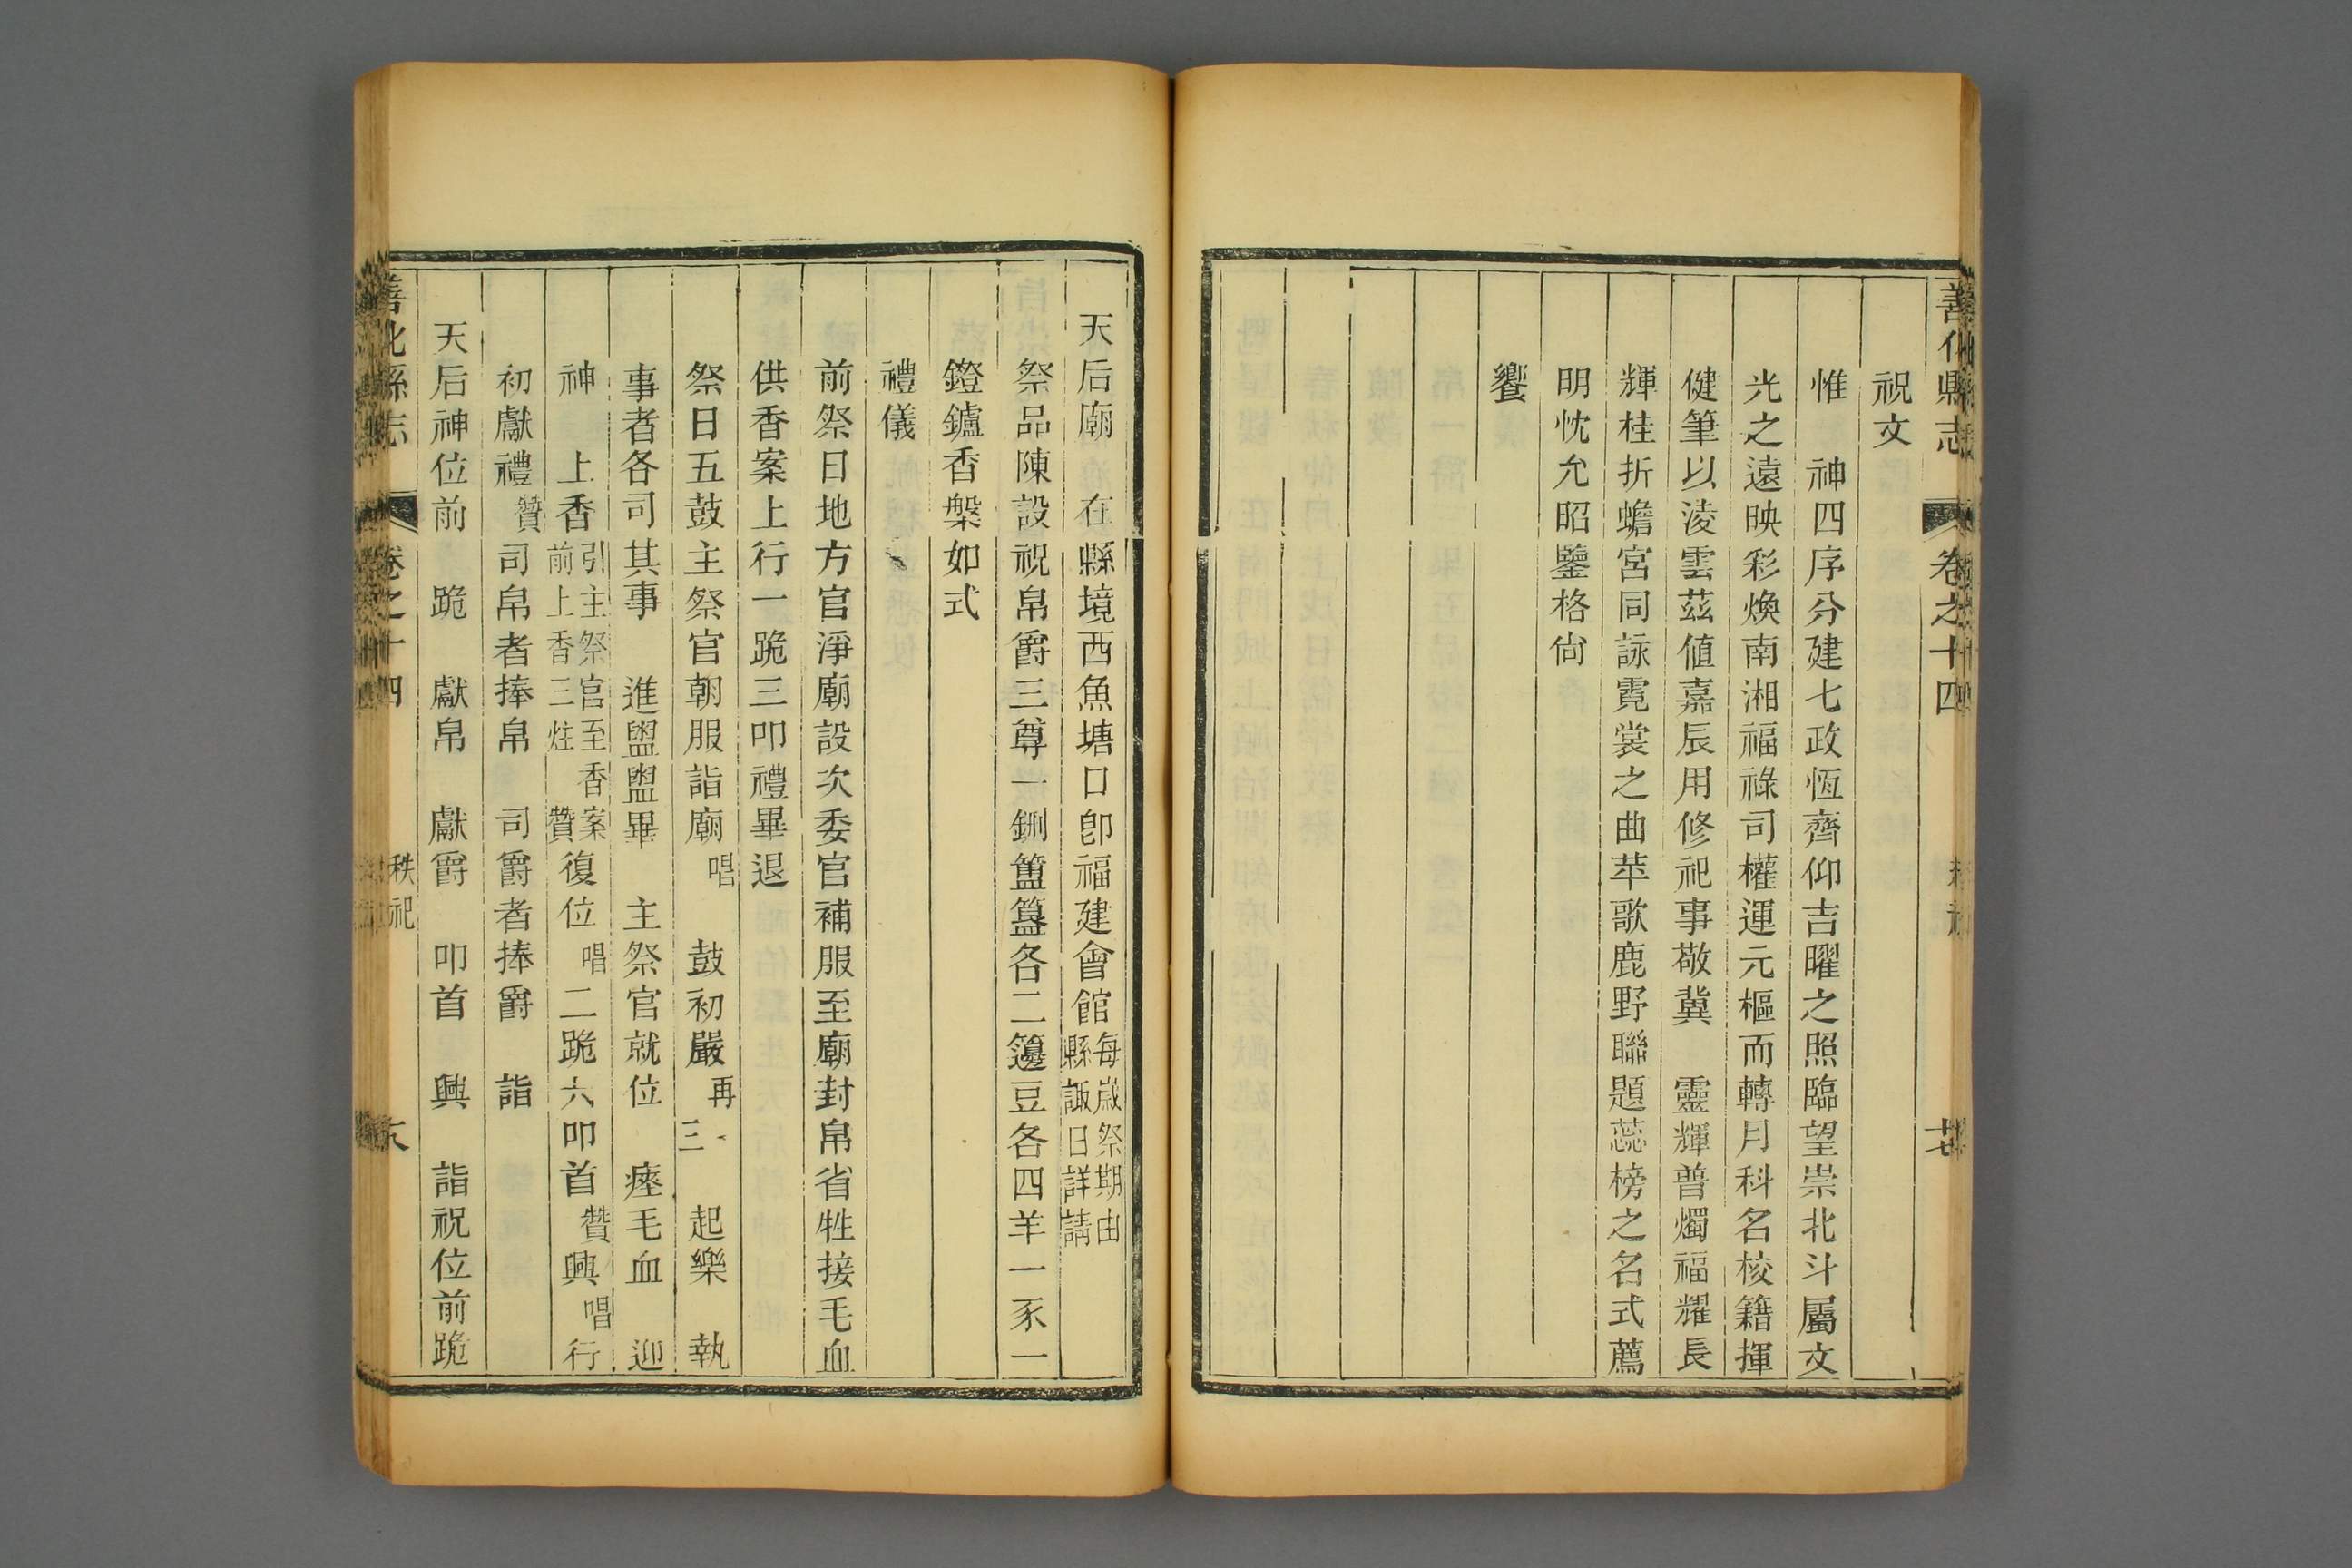 善化縣志 卷之十四 秩祀 廿七
祝文
惟 神四序分建七政恆齊仰吉曜之照臨望崇北斗屬文
光之遠映彩煥南湘福祿司權運元樞而轉月科名校籍揮
健筆以淩雲茲値嘉辰用修祀事敬冀 靈輝普燭福耀長
輝桂折蟾宮同詠霓裳之曲苹歌鹿野聯題蕊榜之名式薦
明忱允昭鑒格尙
饗
天后廟 在縣境西魚塘口卽福建會館每歲祭期由縣諏日詳請
祭品陳設祝帛爵三尊一鉶簠簋各二籩豆各四羊一豕一
鐙鑪香槃如式
禮儀
前祭日地方官淨廟設次委官補服至廟封帛省牲接毛血
供香案上行一跪三叩禮畢退
祭日五鼓主祭官朝服詣廟唱 鼓初嚴再三 起樂 執
事者各司其事 進盥盥畢 主祭官就位 瘞毛血 迎
神 上香引主祭官至香案前上香三炷贊復位唱二跪六叩首贊興唱行
初獻禮贊司帛者捧帛 司爵者捧爵 詣
天后神位前 跪 獻帛 獻爵 叩首 興 詣祝位前跪
善化縣志 卷之十四 秩祀